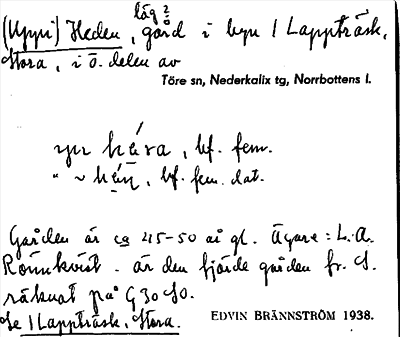 låg 2
(Uppi) Heden, gård i byn 1 Lappträsk,
Stora, i ö. delen av
Töre sn, Nederkalix tg, Norrbottens l.
bf. fem.
" ~ bf. fem. dat.
Gården är ca 45-50 år gl. Ägare: L. A.
Rönnkvist - är den fjärde gården fr. S.
räknat på G 30 S0.
Se 1 Lappträsk, Stora.
EDVIN BRÄNNSTRÖM 1938.